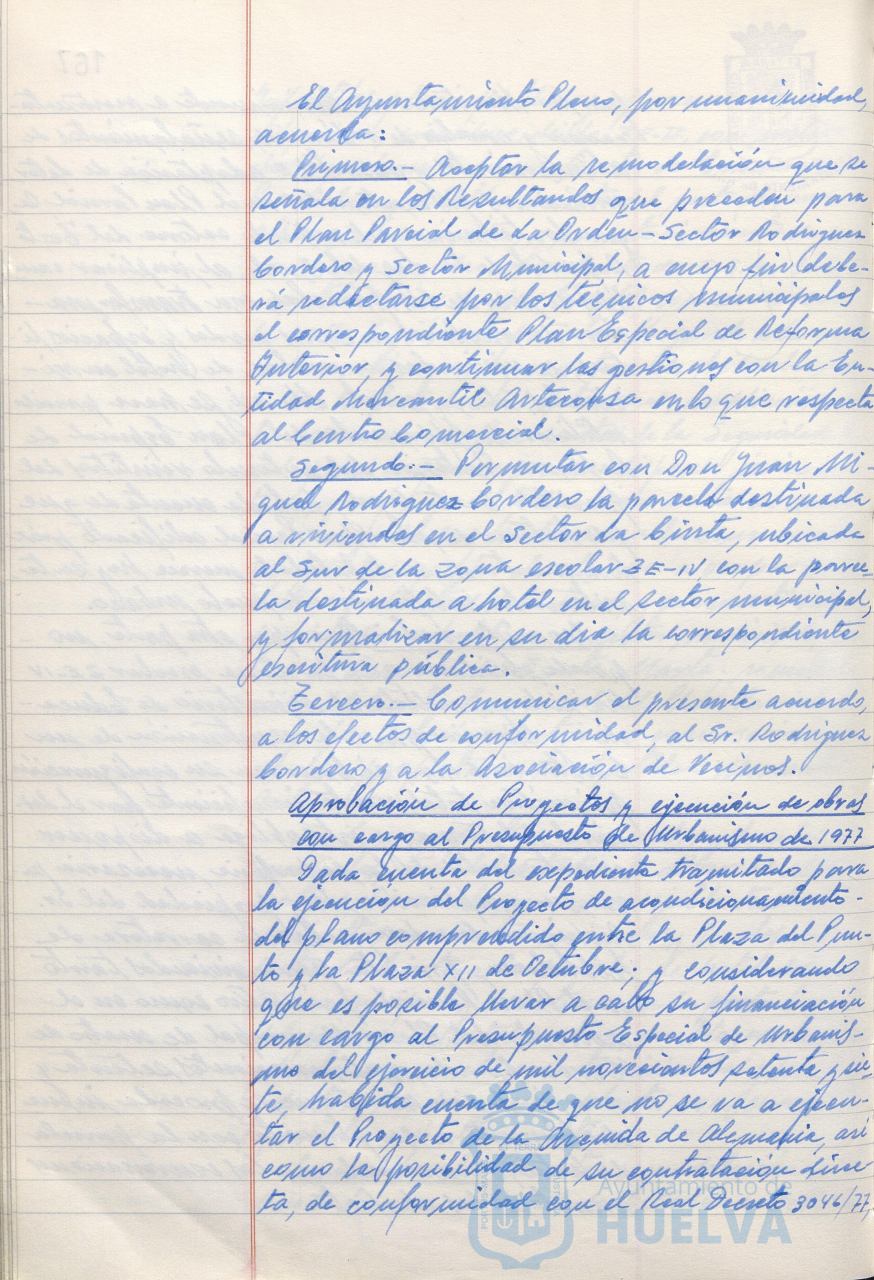 El Ayuntamiento Pleno, por unanimidad,
acuerda:
Primero.- Aceptar la remodelación que se
señala en los Resultandos que preceden para
el Plan Parcial de La Orden-Sector Rodríguez
Cordero y Sector Municipal, a cuyo fin debe-
rá redactarse por los técnicos municipales
el correspondiente Plan Especial de Reforma
Interior, y continuar las gestiones con la En-
tidad Mercantil en lo que respecta
al Centro Comercial.
Segundo:- Permutar con Don Juan Mi-
guel Rodríguez Cordero la parcela destinada
a viviendas en el Sector La Cinta, ubicada
al Sur de la zona escolar ZE-IV con la parce-
la destinada a hotel en el sector municipal,
y formalizar en su día la correspondiente
escritura pública.
Tercero.- Comunicar el presente acuerdo,
a los efectos de conformidad, al Sr. Rodríguez
Cordero y a la Asociación de Vecinos.
Aprobación de Proyectos y ejecución de obras
con cargo al Presupuesto de Urbanismo de 1977
Dada cuenta del expediente tramitado para
la ejecución del Proyecto de acondicionamiento
del plano comprendido entre la Plaza del Pun-
to y la Plaza XII de Octubre; y considerando
que es posible llevar a cabo su financiación
con cargo al Presupuesto Especial de Urbanis-
mo del ejercicio de mil novecientos setenta y sie-
te, habida cuenta de que no se va a ejecu-
tar el Proyecto de la Avenida de Alemania, así
como la posibilidad de su contratación direc-
ta, de conformidad con el Real Decreto 3046/77,
Ayuntamiento de
HUELVA